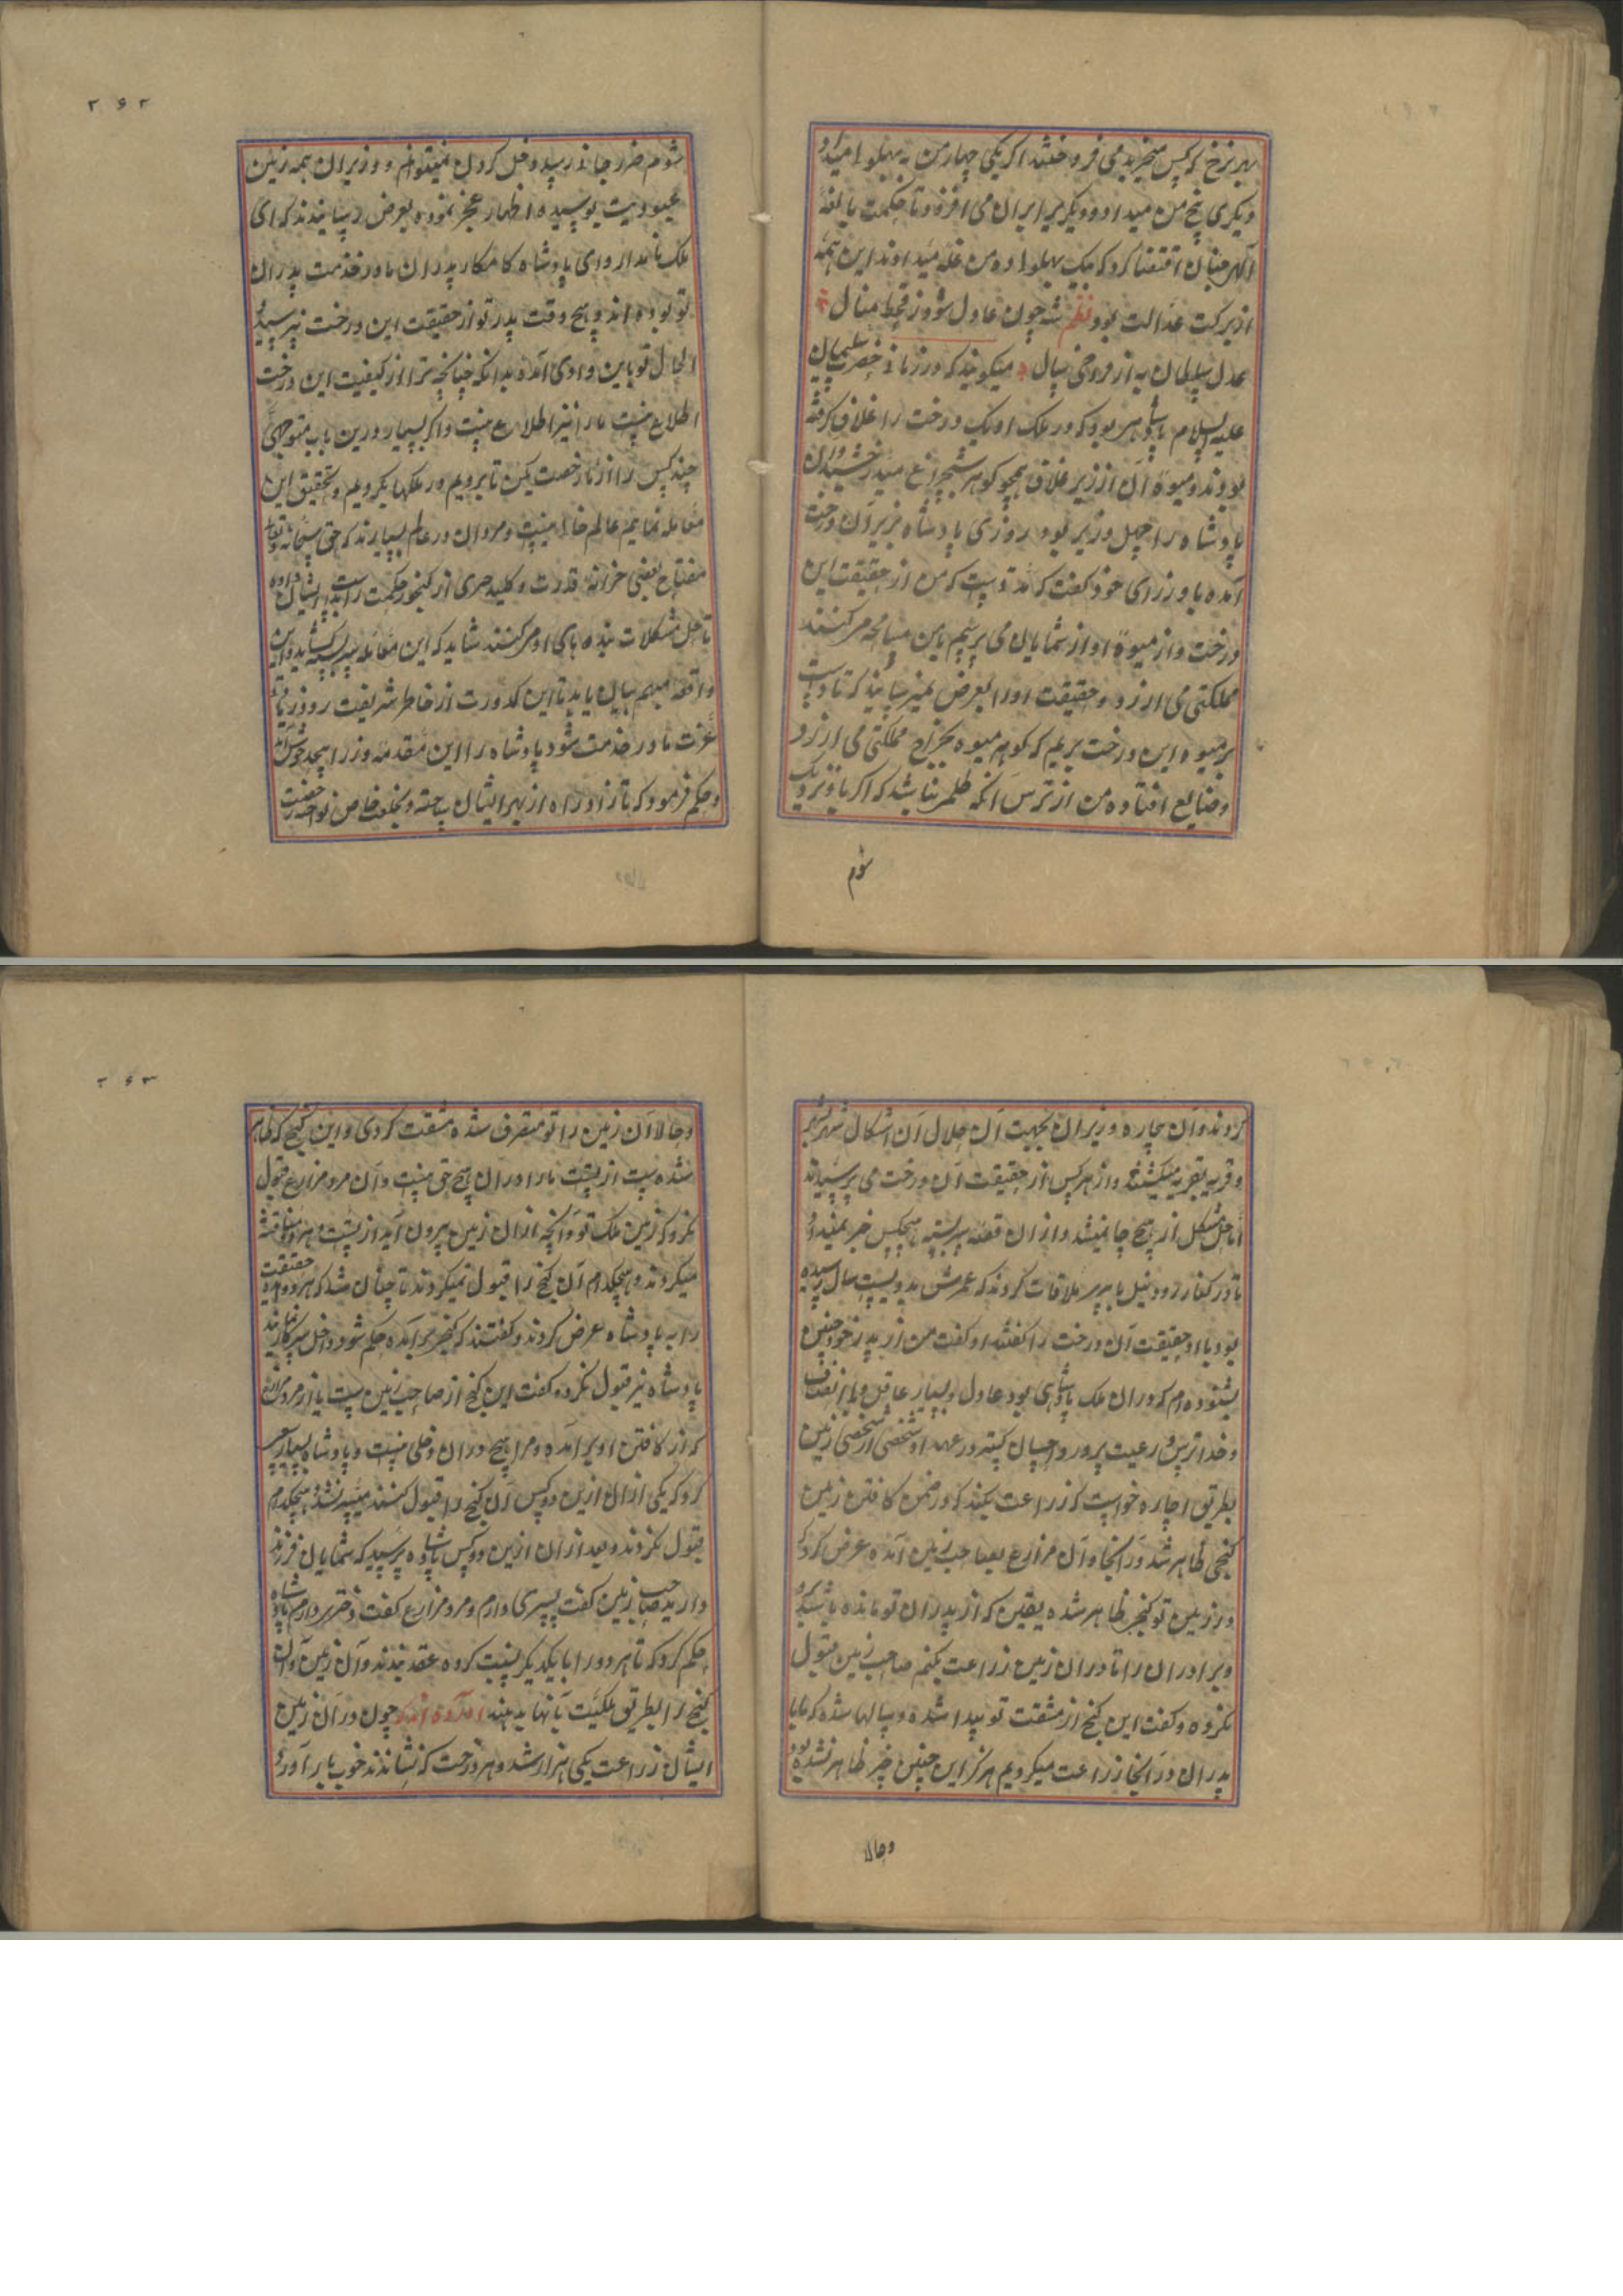 بهر نرخ که کس میخرید می فروختند اگر یکی چهار من به بهلوا میداد
دیگری پنج من میداد و دیگری برابر آن می افزود تا حکمت بالغهٔ
الهی چنان اقتضا کرد که بیک بهلوا ده من غله میدادند این همه
از برکت عدالت بود نظم شه چون عادل شود ز قحط منال
عدل سلطان به از فراخی سال میگویند که در زمان حضرت سلیمان
علیه السلام پادشاهی بود که در ملک او یک درخت را غلاف گرفته
بودند و میوهٔ آن از زیر غلاف همچو گوهر شبچراغ میدرخشید و آن
پادشاه را چهل وزیر بود روزی پادشاه بزیر آن درخت
آمده با وزرای خود گفت که مدتیست که من از حقیقت این
درخت و از میوهٔ او از شمایان می پرسم با من مسامحه میکنند
مملکتی می ارزد و حقیقت او را بعرض نمیرسانید که تا دست
بر میوه این درخت بریم که گوهر میوه بخراج مملکتی می ارزد
و ضایع افتاده من از ترس آنکه ظلمی نباشد که اگر باو نزدیک
شوم
۲۶۲
شوم ضرر جانی رسد دخل کردن نمیتوانم و وزیران همه زمین
عبودیت بوسیده اظهار عجز نموده بعرض رسانیدند که ای
ملک نامدار و ای پادشاه کامکار پدران ما در خدمت پدران
تو بوده اند و هیچ وقت پدر تو از حقیقت این درخت نپرسیده
الحال تو باین وادی آمده بدانکه چنانچه ترا از کیفیت این درخت
اطلاع نیست ما را نیز اطلاع نیست و اگر بسیار درین باب متوجهی
چند کس را از ما رخصت کن تا برویم در ملکها بگردیم و تحقیق این
معامله نمایم عالم خالی نیست و مردان در عالم بسیارند که حق سبحانه و تعالی
مفتاح بعضی خزانه قدرت و کلید حرزی از گنجور حکمت را بدست ایشان داده
تا حل مشکلات بنده های او میکنند شاید که این معامله سربسته بگشاید و این
واقعه مبهم بیان یابد تا این کدورت از خاطر شریفت رود و زیادتی
عزت ما در خدمت شود پادشاه را این مقدمه وزرا بیحد خوش آمد
و حکم فرمود که تا زاد راه از بهر ایشان ساخته و بخلعت خاص نواخته رخصت
کردند و آن بیچاره وزیران بجهت آن حلال آن اشکال شهر بشهر
و قریه بقریه میگشتند و از هر کس از حقیقت آن درخت می پرسیدند
اما حل مشکل از هیچ جا نمیشد و از ان قصه سربسته هیچکس خبر نمیداد
تا در کنار رود نیل با پیری ملاقات کردند که عمرش بدویست سال رسیده
بود با او حقیقت آن درخت را گفتند او گفت من از پدر خود چنین
شنوده ام که در ان ملک پادشاهی بود عادل و بسیار عاقل و با انصاف
و خداترس و رعیت پرور و احسان گستر در عهد او شخصی از شخصی زمین
بطریق اجاره خواست که زراعت بکند که در ضمن کافتن زمین
گنجی ظاهر شد در آنجا و آن مزارع بصاحب زمین آمده عرض کرد که
در زمین تو گنجی ظاهر شده یقین که از پدران تو مانده باشد برو
و بردار آن را تا در ان زمین زراعت بکنم صاحب زمین قبول
نکرده و گفت این گنج از مشقت تو پیدا شده و سالها شده که ما با
پدران در آنجا زراعت میکردیم هرگز این چنین چیز ظاهر نشده بود
و حالا
۲۶۳
و حالا آن زمین را تو متصرف شده مشقت کردی و این گنج که ظاهر
شده ست از تست ما را در ان هیچ حق نیست و آن مرد مزارع قبول
نکرد که زمین ملک تو و آنچه از ان زمین بیرون آید از تست و هر دو مناقشه
میکردند و هیچکدام آن گنج را قبول نمیکردند تا چنان شد که هر دو حقیقت
را به پادشاه عرض کردند و گفتند که گنجی برآمده حکم شود داخل سرکار نمایند
پادشاه نیز قبول نکرده گفت این گنج از صاحب زمین ست یا از مرد مزارع
که از کافتن او برآمده و مرا هیچ در ان دخلی نیست و پادشاه بسیار سعی
کرد که یکی از ان ازین دو کس آن گنج را قبول کنند میسر نشد و هیچکدام
قبول نکردند و بعد از ان ازین دو کس پادشاه پرسید که شمایان فرزند
دارید صاحب زمین گفت پسری دارم و مرد مزارع گفت دختر دارم پادشاه
حکم کرد که تا هر دو را با یکدیگر نسبت کرده عقد بندند و آن زمین و آن
گنج را بطریق ملکیت بآنها بدهند آورده اند که چون در آن زمین
ایشان زراعت یکی هزار شد و هر درخت که نشاندند خوب بار آورد